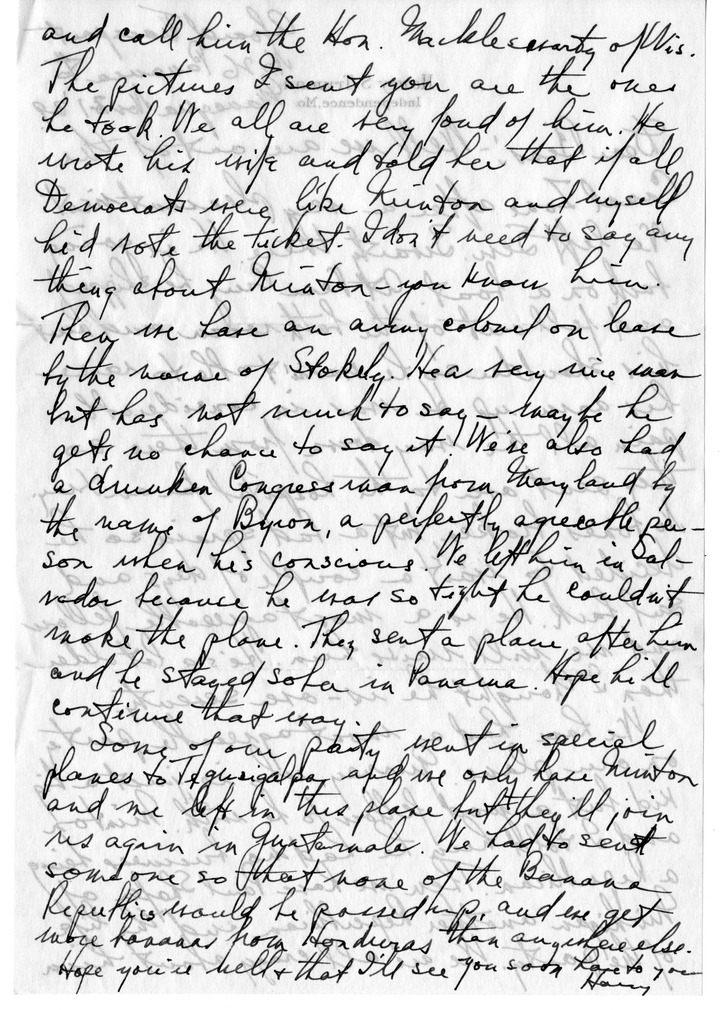 and call him the Hon. Macklesmarty of Wis.
The pictures I sent you are the ones
he took. We all are very fond of him. He
wrote his wife and told her that if all
Democrats were like Minton and myself
he'd vote the ticket. I don't need to say any
thing about Minton - you know him.
Then we have an army colonel on leave
by the name of Stokely. Hes a very nice man
but has not much to say - maybe he
gets no chance to say it! We've also had
a drunken Congressman from Maryland by
the name of Byron, a perfectly agreeable per-
son when his conscious. We left him in Sal-
vador because he was so tight he couldn't
make the plane. They sent a plane after him
and he stayed sober in Panama. Hope he'll
continue that way.
Some of our party went in special
planes to Tegucigalpa and we only have Minton
and me left in this plane but they'll join
us again in Guatemala. We had to send
someone so that none of the Banana
Republics would be passed up, and we get
more bananas from Honduras than anywhere else.
Hope you're well & that I'll see you soon love to you
Harry
Independence, Mo.